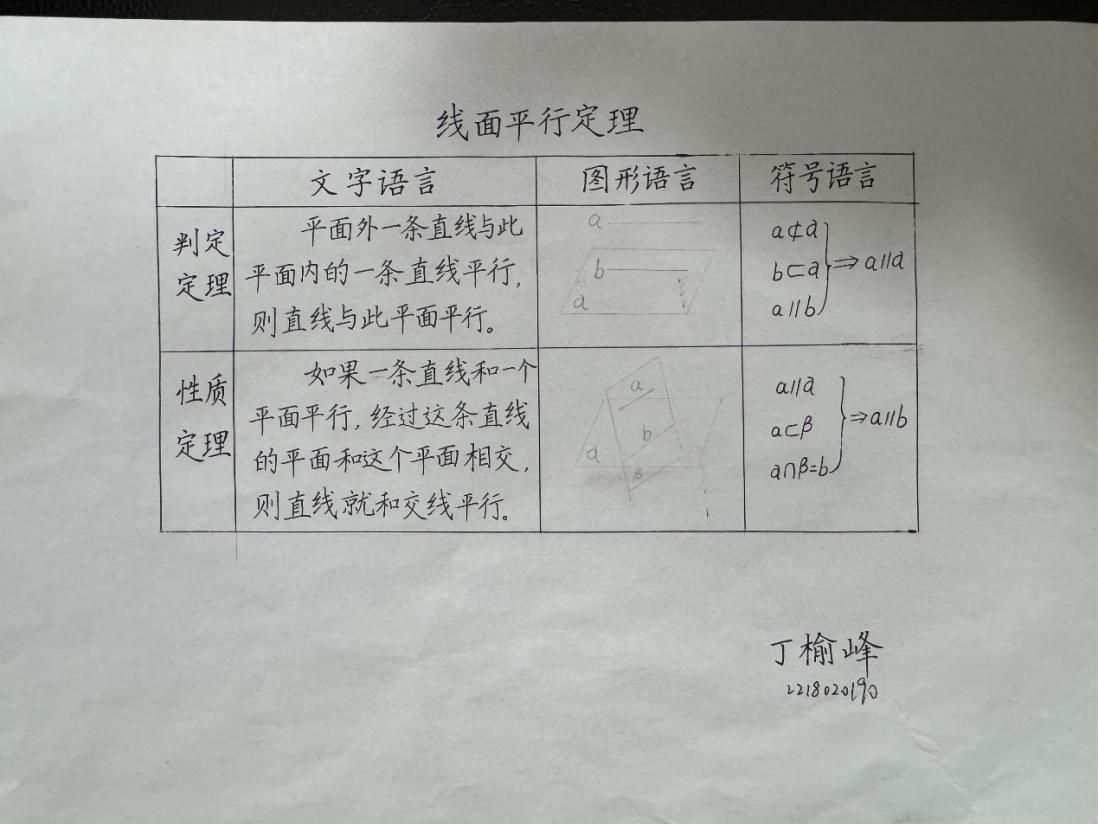 线面平行定理
文字语言 图形语言 符号语言
判定
定理
平面外一条直线与此
平面内的一条直线平行,
则直线与此平面平行。
a
b
a
a⊄a
b⊂a
a//b
⇒a//a
性质
定理
如果一条直线和一个
平面平行,经过这条直线
的平面和这个平面相交,
则直线就和交线平行。
a
b
a
β
a//a
a⊂β
a∩β=b
⇒a//b
丁榆峰
2218020190